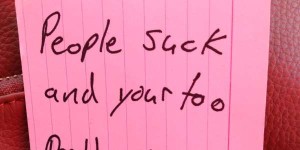 People suck
and your too